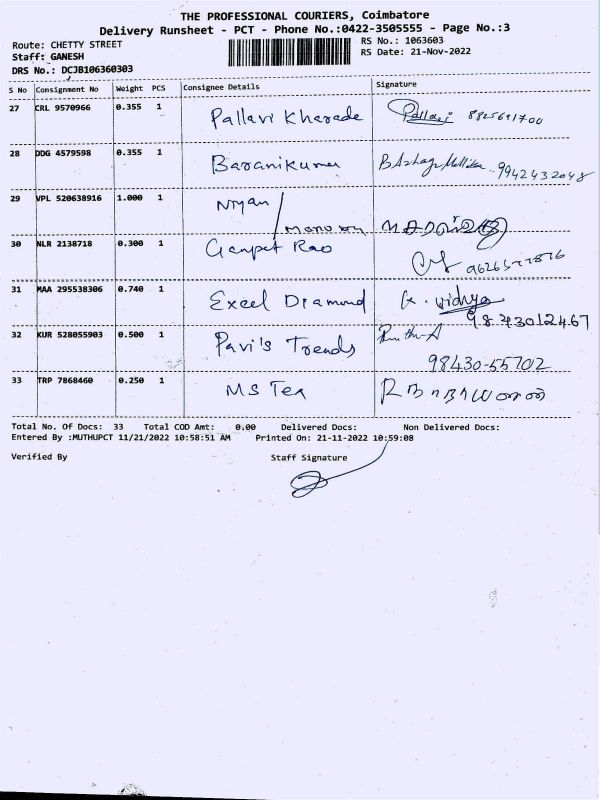 THE PROFESSIONAL COURIERS, Coimbatore
Delivery Runsheet - PCT - Phone No.:0422-3505555 - Page No.:3
Route: CHETTY STREET
RS No.: 1063603
Staff: GANESH
RS Date: 21-Nov-2022
DRS No.: DCJB106360303
S No Consignment No Weight PCS Consignee Details Signature
27 CRL 9570966 0.355 1 Pallavi Kharade Pallavi
28 DDG 4579598 0.355 1 Baranikumar 9942432048
29 VPL 520638916 1.000 1
30 NLR 2138718 0.300 1 Ganpat Rao
31 MAA 295538306 0.740 1 Excel Diamond G. Vidhya
9843012467
32 KUR 528055903 0.500 1 Pavi's Trends
98430-55702
33 TRP 7868460 0.250 1 MS Tex
Total No. Of Docs: 33 Total COD Amt: 0.00 Delivered Docs: Non Delivered Docs:
Entered By :MUTHUPCT 11/21/2022 10:58:51 AM Printed On: 21-11-2022 10:59:08
Verified By Staff Signature